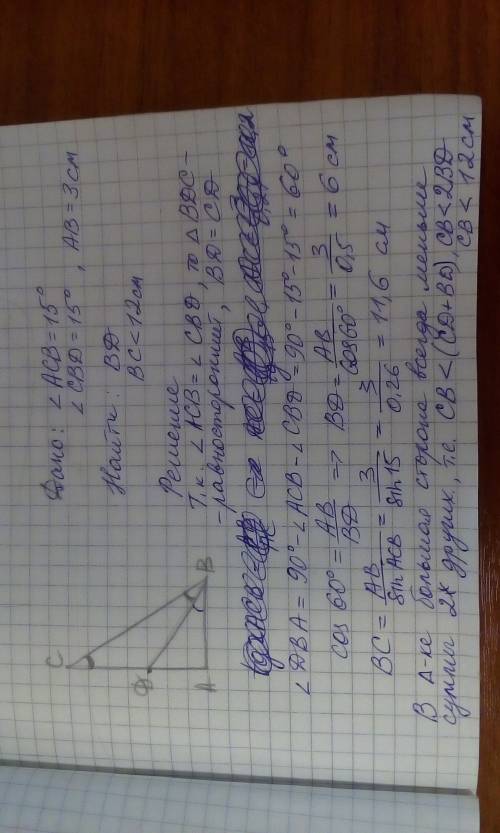 Дано: ∠ACB = 15°
∠CBD = 15°, AB = 3 см
Найти: BD
BC < 12 см
Решение
Т.к. ∠ACB = ∠CBD, то △BDC –
– равносторонний, BD = CD
∠DBA = 90° - ∠ACB - ∠CBD = 90° - 15° - 15° = 60°
cos 60° = AB/BD => BD = AB/cos60° = 3/0,5 = 6 см
BC = AB/sin ACB = 3/sin 15 = 3/0,26 = 11,6 см
В △-ке большая сторона всегда меньше
суммы 2х других, т.е. CB < (CD + BD), CB < 2BD
CB < 12 см
C
D
A
B